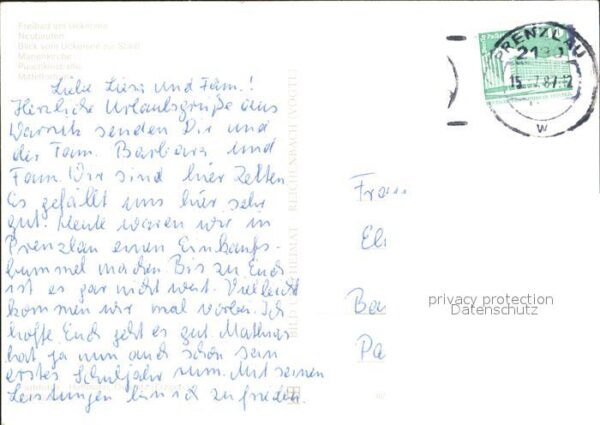 Freibad am Uckersee
Neubauten
Blick vom Uckersee zur Stadt
Marienkirche
Mitteltorturm
Liebe Luisa und Fam.!
Herzliche Urlaubsgrüße aus
Warnitz senden Dir und
der Fam. Barbara und
Fam. Wir sind hier Zelten
Es gefällt uns hier sehr
gut. Heute waren wir in
Prenzlau einen Einkaufs-
bummel machen. Bis zu Euch
ist es gar nicht weit. Vielleicht
kommen wir mal vorbei. Ich
hoffe Euch geht es gut. Mathias
hat ja nun auch schon sein
erstes Schuljahr rum. Mit seinen
Leistungen bin ich zufrieden.
BILD HEIMAT REICHENBACH (VOGTL)
PRENZLAU
2130
15.-7.87-12
w
Frau
El
Ba
Pa
privacy protection
Datenschutz